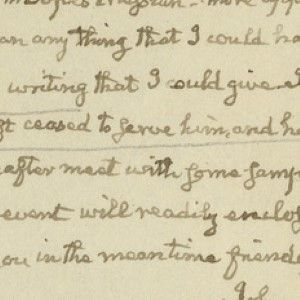 an any thing that I could ha
writing that I could give
ceased to serve him, and ha
after meet with some samp
event will readily enclos
ou in the meantime friend